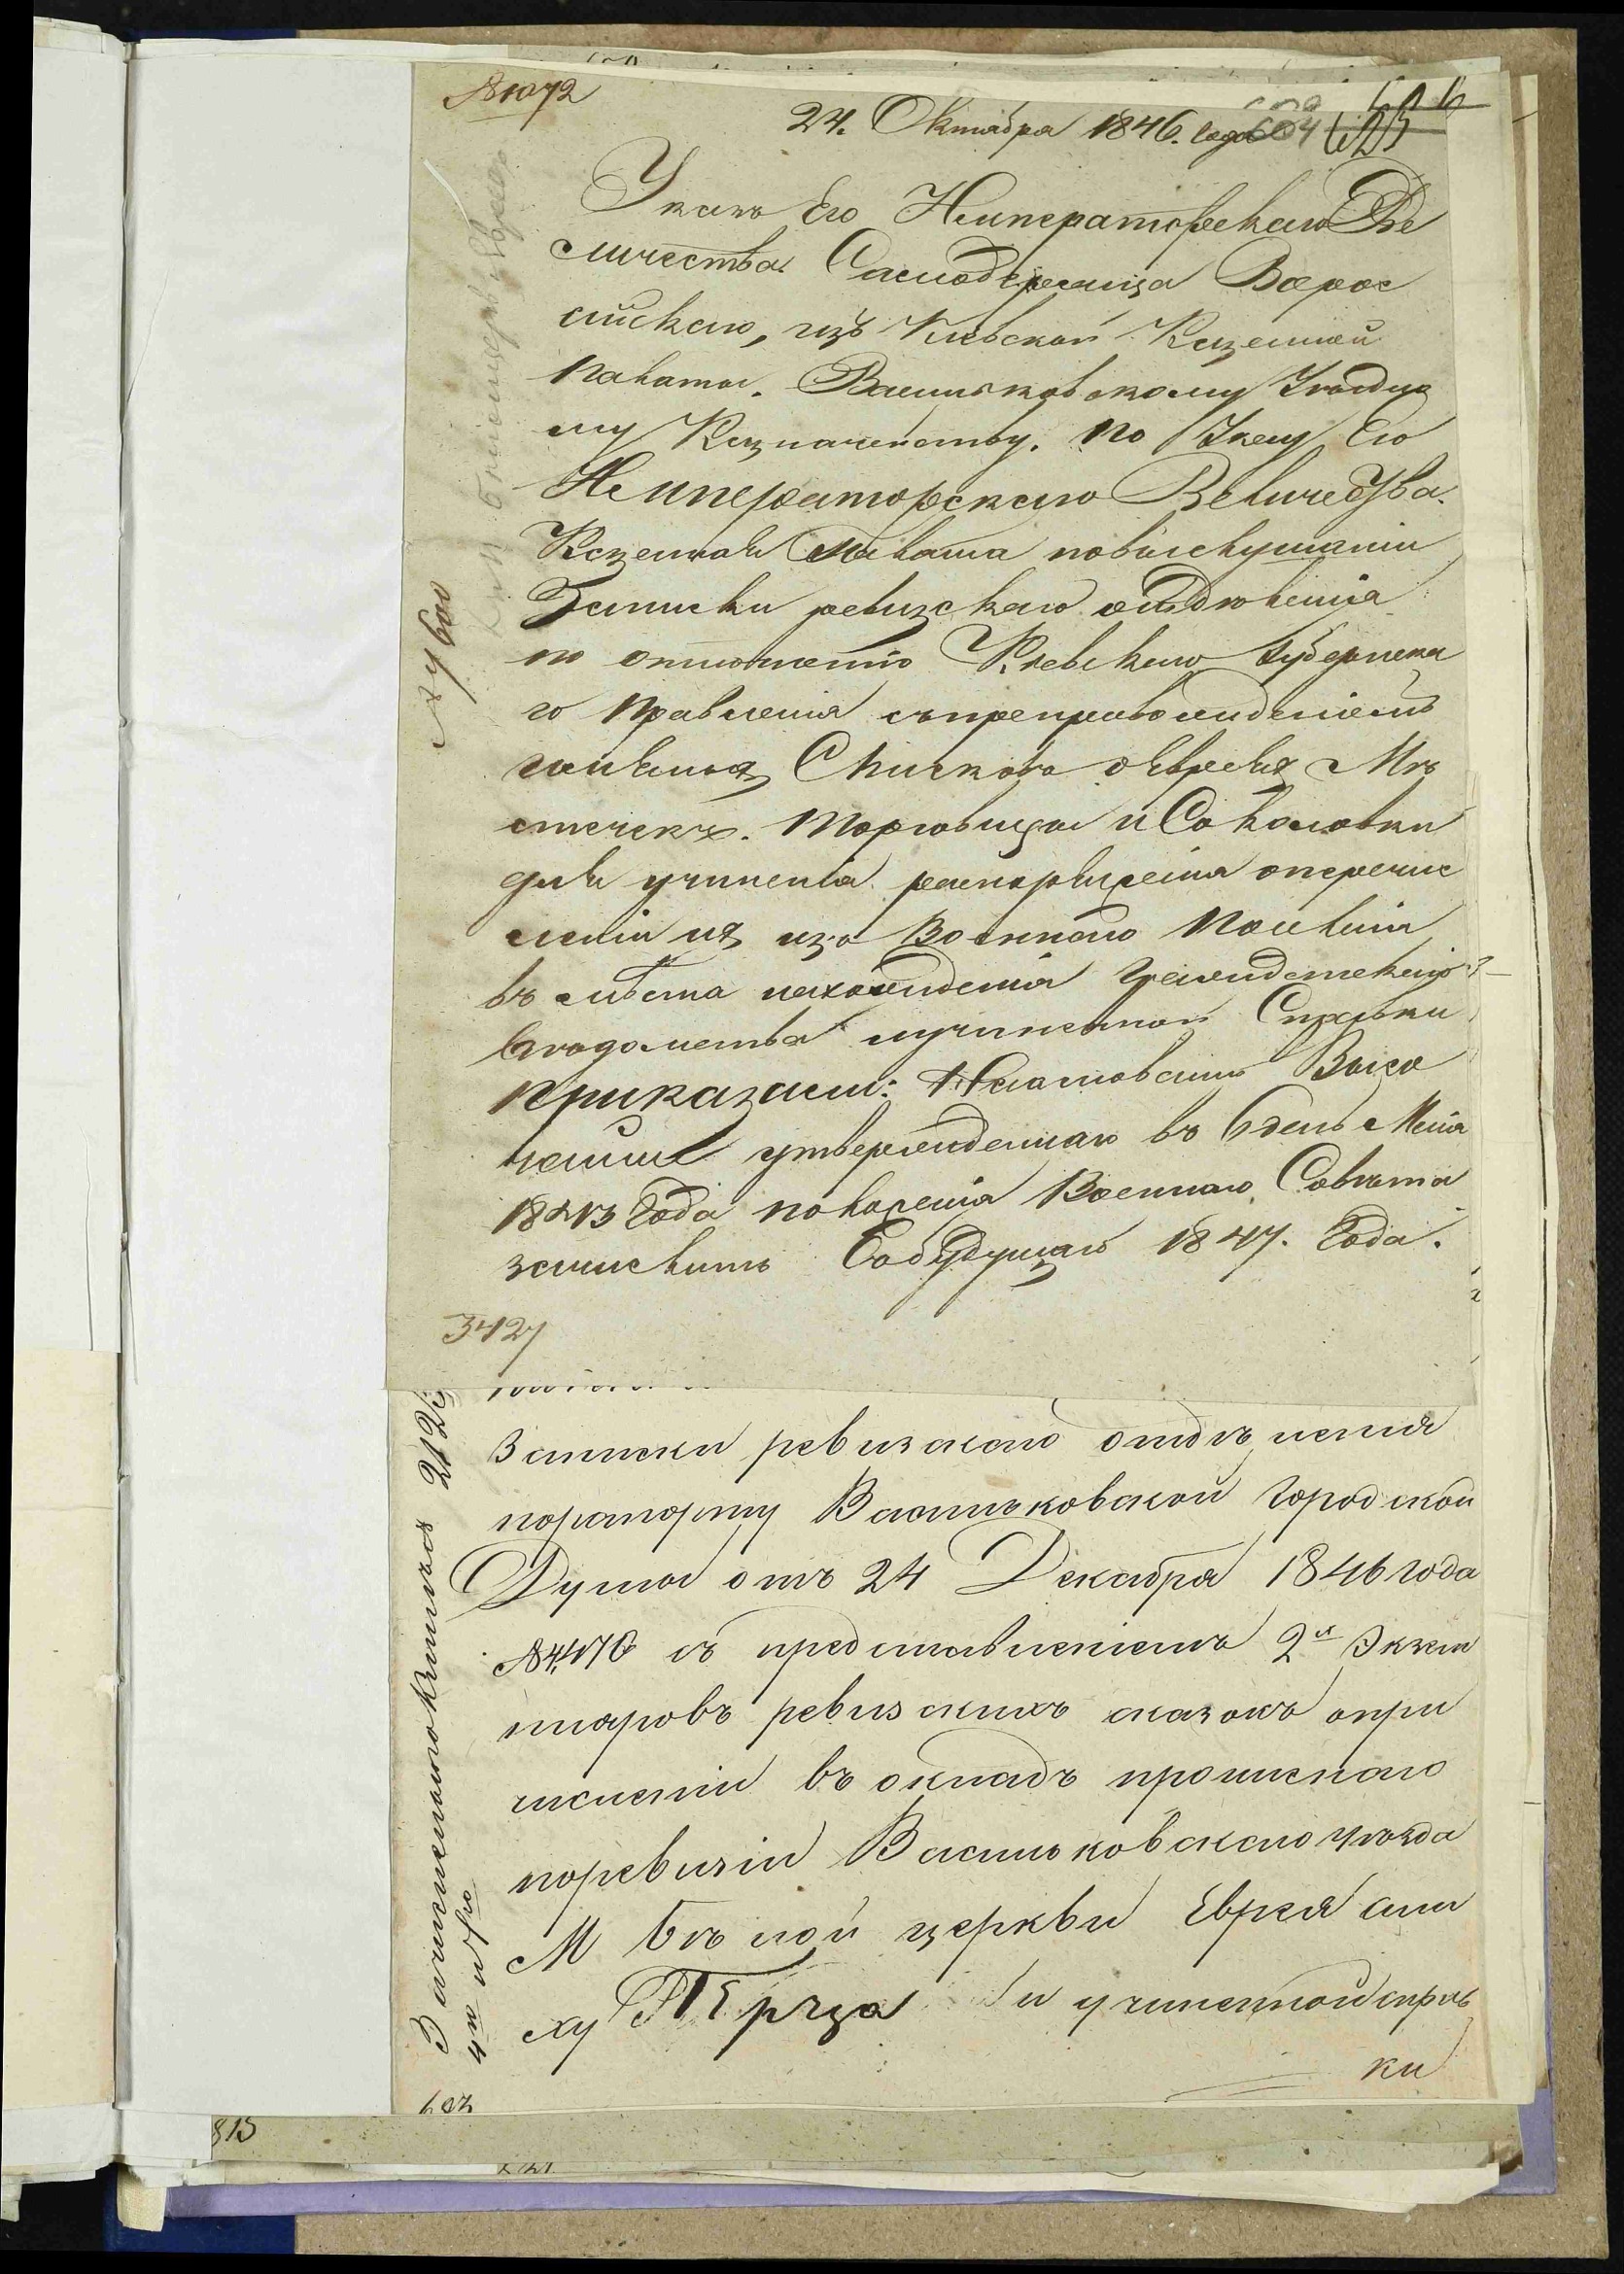 № 1072
24. Октября 1846. года 604
Указъ Его Императорскаго Ве
личества Самодержца Всерос
сійскаго, изъ Кіевской Казенной
Палаты. Васильковскому Уездно
му Казначейству. По Указу Его
Императорскаго Величества.
Казенная Палата повыслушаніи
Записки ревизскаго отдѣленія
по отношенію Кіевскаго Губернска
го Правленія съпрепровожденіемъ
имянныхъ Списковъ оЕвреяхъ Мѣ
стечекъ. Торговицы и Соколовки
для учиненія распоряженія оперечис
леніи ихъ изъ Военнаго Поселенія
въ мѣста нахожденія Гражданскаго
Вѣдомства иучиненной Справки
Приказали: Наосновании Высо
чайше утвержденнаго въ 6 день Мая
1843 Года положенія Военнаго Совѣта
зачислить Сабудущаго 1847. Года.
3427
№ у 600
Записки ревизскаго отдѣленія
порапорту Васильковской Городской
Думы отъ 24 Декабря 1846 года
№ 4170 съ представленіемъ 2х Экзем
пляровъ ревизскихъ сказокъ опри
численіи въ окладъ прописнаго
поревизіи Васильковскаго уѣзда
М Бѣлой церкви Еврея
ху Перца и учиненной справ
ки
603
815